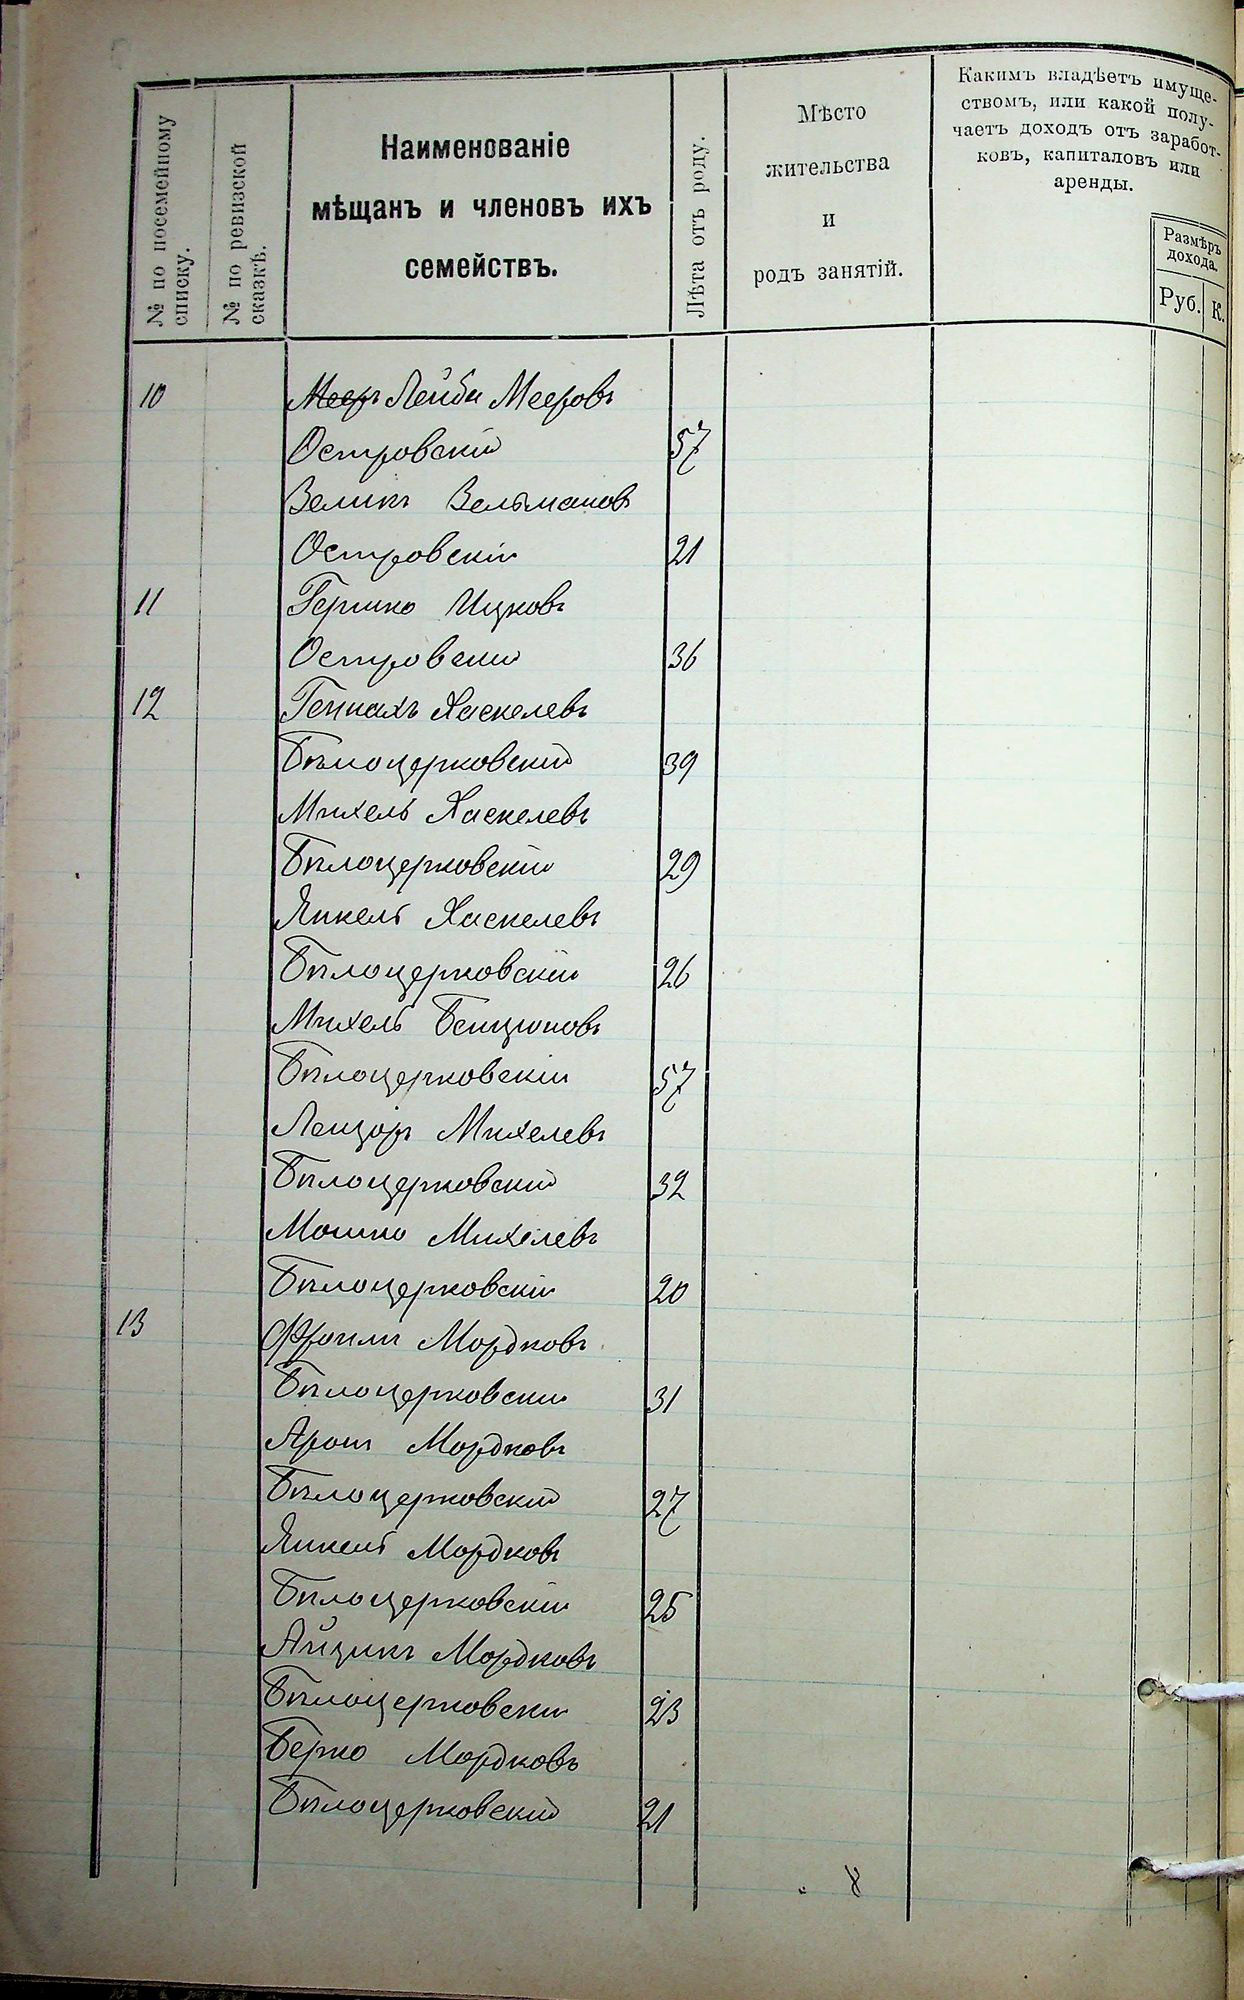 № по посемейному
списку.
№ по ревизской
сказкѣ.
Наименованіе
мѣщанъ и членовъ ихъ
семействъ.
Лѣта отъ роду.
Мѣсто
жительства
и
родъ занятій.
Какимъ владѣетъ имуще-
ствомъ, или какой полу-
чаетъ доходъ отъ заработ-
ковъ, капиталовъ или
аренды.
Размѣръ
дохода.
Руб. К.
10 Мееръ Лейба Мееровъ
Островскій 57
Зеликъ Зельмановъ
Островскій 21
11 Гершко Ицковъ
Островскій 36
12 Геннахъ Хаскелевъ
Бѣлоцерковскій 39
Михель Хаскелевъ
Бѣлоцерковскій 29
Янкель Хаскелевъ
Бѣлоцерковскій 26
Михель Бенціоновъ
Бѣлоцерковскій 57
Лейзоръ Михелевъ
Бѣлоцерковскій 32
Мошко Михелевъ
Бѣлоцерковскій 20
13 Фроимъ Мордковъ
Бѣлоцерковскій 31
Аронъ Мордковъ
Бѣлоцерковскій 27
Янкель Мордковъ
Бѣлоцерковскій 25
Айзикъ Мордковъ
Бѣлоцерковскій 23
Берко Мордковъ
Бѣлоцерковскій 21
8